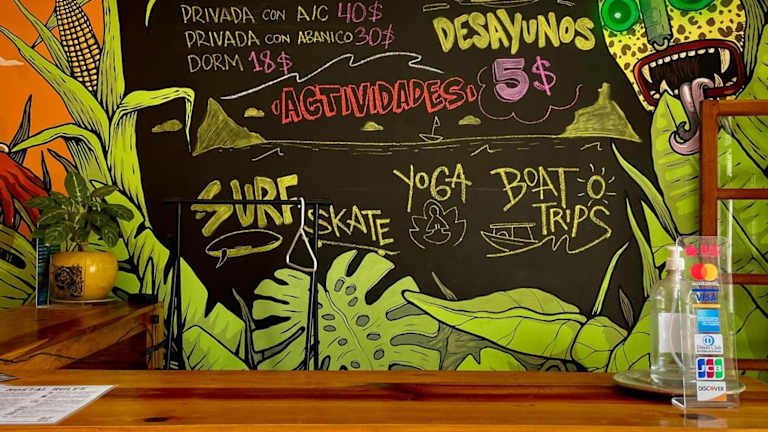 PRIVADA CON A/C 40$
PRIVADA CON ABANICO 30$
DORM 18$
DESAYUNOS
5$
ACTIVIDADES
SURF
SKATE
YOGA
BOAT TRIPS
VISA
Diners Club
JCB
DISCOVER
RULES